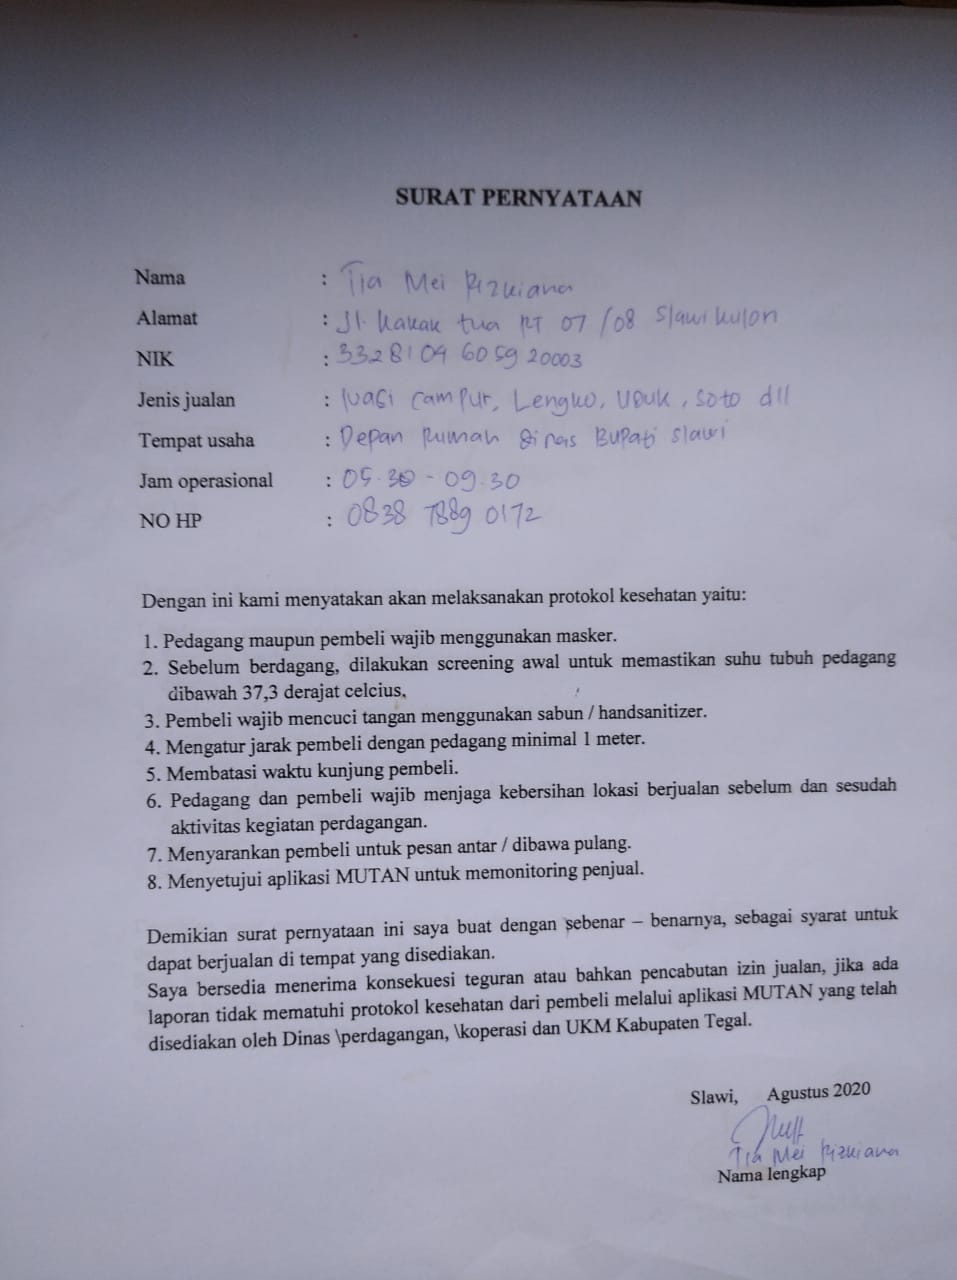 SURAT PERNYATAAN
Nama : Tia Mei Rizkiana
Alamat : Jl. Kakak tua RT 07/08 Slawi kulon
NIK : 3328104605920003
Jenis jualan : Nasi campur, Lengko, Uduk, Soto dll
Tempat usaha : Depan Rumah Dinas Bupati Slawi
Jam operasional : 05.30 - 09.30
NO HP : 0838 7889 0172
Dengan ini kami menyatakan akan melaksanakan protokol kesehatan yaitu:
1. Pedagang maupun pembeli wajib menggunakan masker.
2. Sebelum berdagang, dilakukan screening awal untuk memastikan suhu tubuh pedagang
dibawah 37,3 derajat celcius.
3. Pembeli wajib mencuci tangan menggunakan sabun / handsanitizer.
4. Mengatur jarak pembeli dengan pedagang minimal 1 meter.
5. Membatasi waktu kunjung pembeli.
6. Pedagang dan pembeli wajib menjaga kebersihan lokasi berjualan sebelum dan sesudah
aktivitas kegiatan perdagangan.
7. Menyarankan pembeli untuk pesan antar / dibawa pulang.
8. Menyetujui aplikasi MUTAN untuk memonitoring penjual.
Demikian surat pernyataan ini saya buat dengan sebenar – benarnya, sebagai syarat untuk
dapat berjualan di tempat yang disediakan.
Saya bersedia menerima konsekuesi teguran atau bahkan pencabutan izin jualan, jika ada
laporan tidak mematuhi protokol kesehatan dari pembeli melalui aplikasi MUTAN yang telah
disediakan oleh Dinas \perdagangan, \koperasi dan UKM Kabupaten Tegal.
Slawi, Agustus 2020
Tia Mei Rizkiana
Nama lengkap